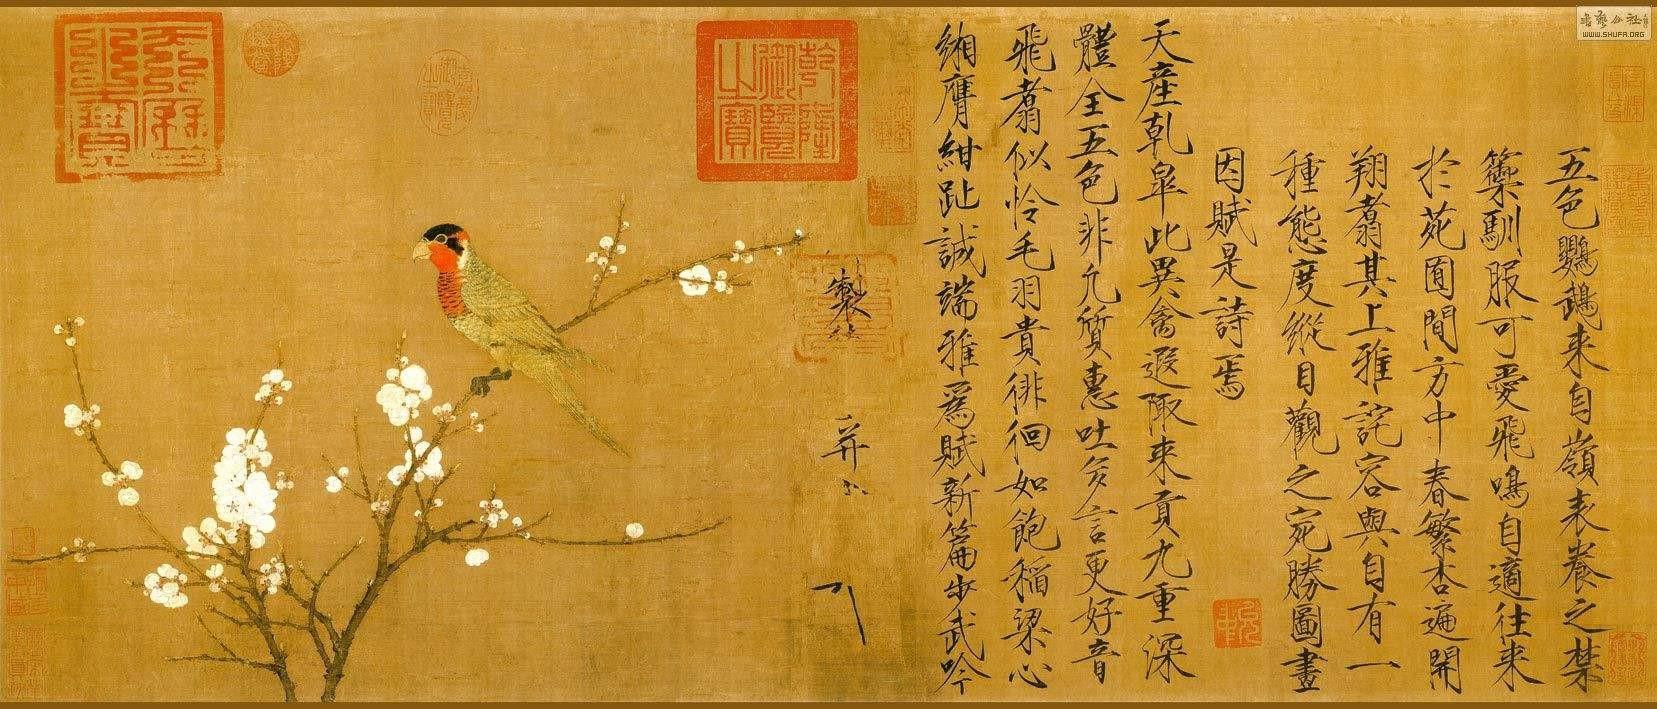 五色鸚鵡来自嶺表養之禁
籞馴服可愛飛鳴自適往来
於苑囿間方中春繁杏遍開
翔翥其上雅詫容與自有一
種態度縱目觀之宛勝圖畫
因賦是詩焉
天産乾皐此異禽遐陬来貢九重深
體全五色非凡質惠吐多言更好音
飛翥似憐毛羽貴徘徊如飽稻粱心
緗膺紺趾誠端雅爲賦新篇步武吟
製
并
乾隆御覽之寶
天曆之寶
WWW.SHUFA.ORG